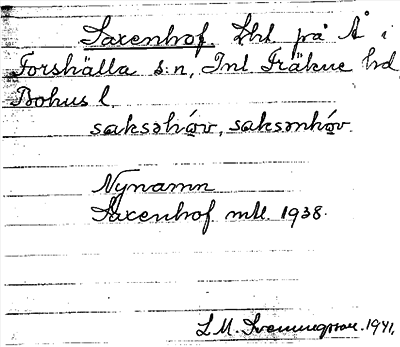 Saxenhof. Lht på Å i
Forshälla s:n, Inl Fräkne hd
Bohus l.
saksəhóv, saksənhóv.
Nynamn
Saxenhof mtl. 1938.
L M. Svenungsson. 1941.